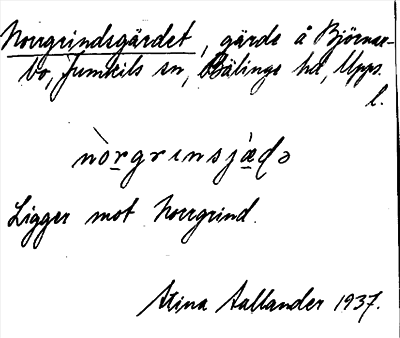 Norrgrindsgärdet, gärde å Björnar-
bo, Jumkils sn, Bälinge hd, Upps.
l.
nòrgrınsjæ̀ḍə
Ligger mot Norrgrind.
Stina Aallander 1937.